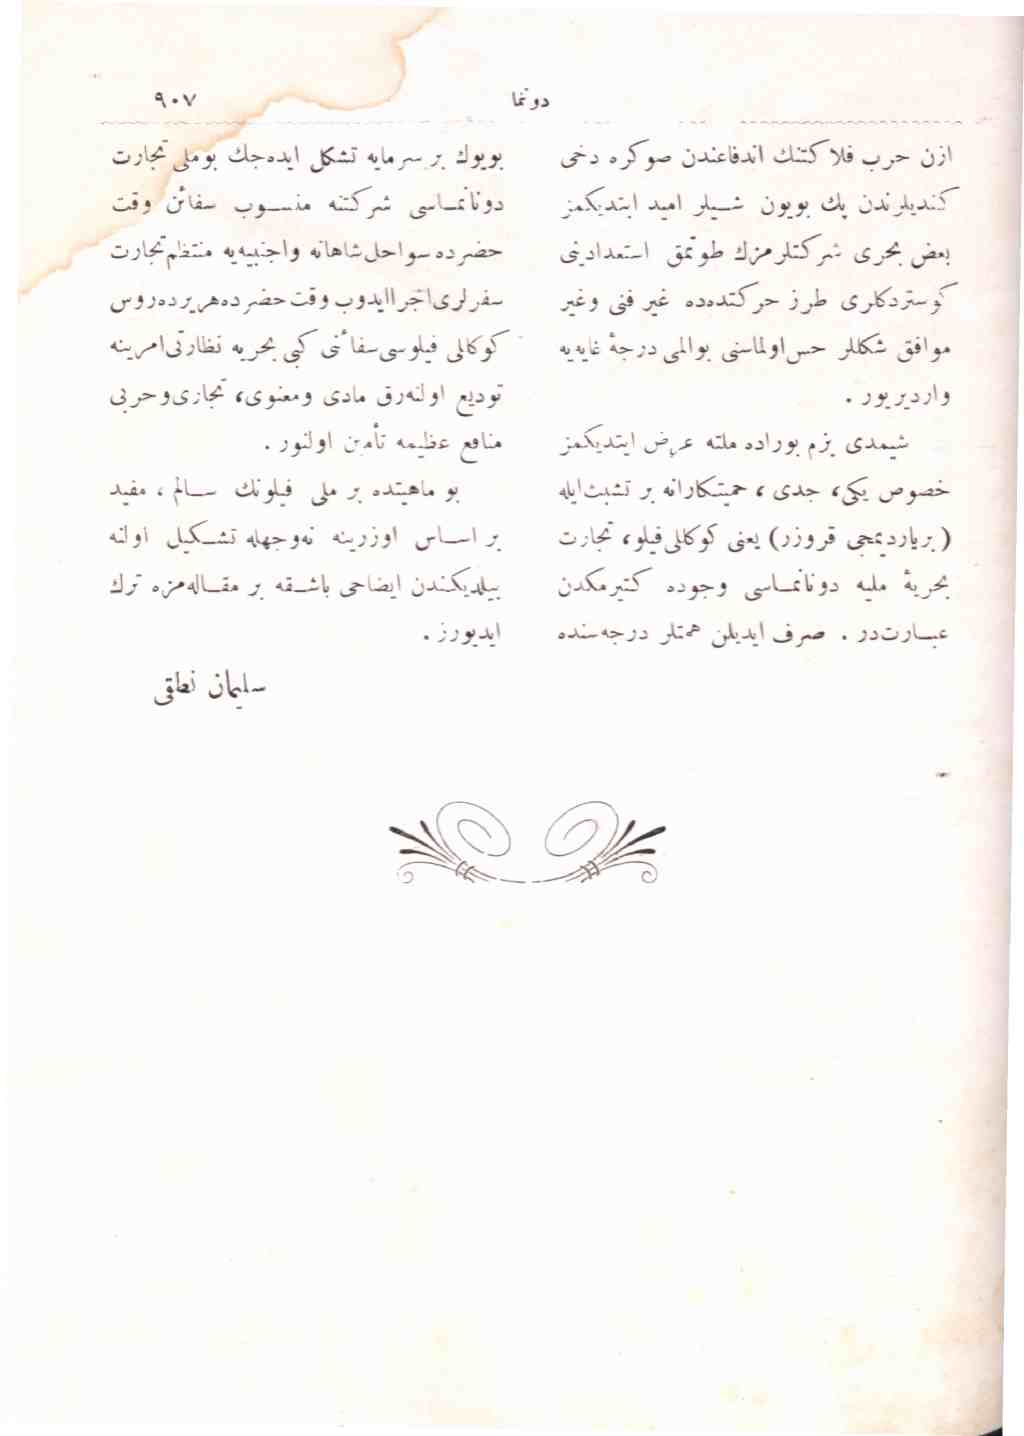 دوننما
٩٠٧
ازن حرب فلاكتنك اندفاعندن صوكره دخی
كنديلرندن پك بويوك شیلر اميد ايتديكمز
بعض بحری شركتلرمزك طوتمق استعدادینی
كوستردكاری طرز حركتده‌ده غیر فنی وغیر
موافق شكللر حس‌اولماسنی بوالمی درجۀ غایه‌یه
واردیریور .
شیمدی بزم بوراده ملته عرض ايتديكمز
خصوص یكی، جدی ، حمیتكارانه بر تشبث‌ایله
(بریاردیمجی قروزر) یعنی كوكللی‌فیلو، تجارت
بحریۀ ملیه دونانماسی وجوده كتیرمكدن
عبارت‌در . صرف ایدیلن همتلر درجه‌سنده
بویوك بر سرمایه تشكل ایده‌جك بوملی تجارت
دونانماسی شركتنه منسوب سفائن وقت
حضرده سواحل‌شاهانه واجنبیه‌یه منتظم‌تجارت
سفرلری‌اجراایدوب وقت حضرده‌هریرده‌روس
كوكللی فیلوسی‌سفائنی كبی بحریه نظارتی‌امرینه
تودیع اولنه‌رق مادی ومعنوی، تجاری‌وحربی
منافع عظیمه تأمین اولنور .
بو ماهیتده بر ملی فیلونك سالم ، مفید
بر اساس اوزرینه نه‌وجهله تشكیل اولنه
بیلدیكندن ایضاحی باشقه بر مقاله‌مزه ترك
ایدیورز .
سلیمان نطقی